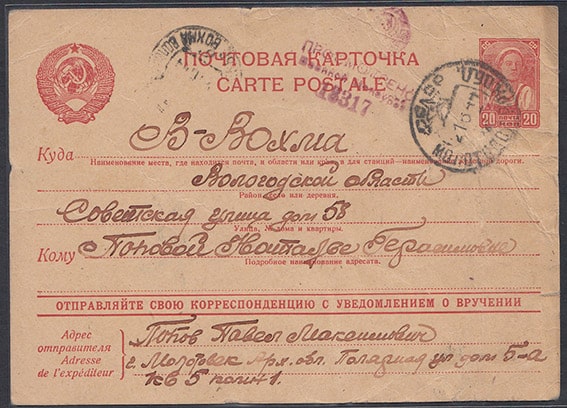 ПОЧТОВАЯ КАРТОЧКА
CARTE POSTALE
ПРОСМОТРЕНО
13317
20 ПОЧТА 20
КОП
Куда В-Вохма
Наименование места, где находится почта, и области или края, а для станций—наименование жел. дороги.
Вологодской области
Район, село или деревня.
Советская улица дом 58
Улица, № дома и квартиры.
Кому Поповой Наталье Герасимовне
Подробное наименование адресата.
ОТПРАВЛЯЙТЕ СВОЮ КОРРЕСПОНДЕНЦИЮ С УВЕДОМЛЕНИЕМ О ВРУЧЕНИИ
Адрес отправителя
Adresse de l'expéditeur
Попов Павел Максимович
г. Молотовск Арх. овл. Полярная ул дом 5-а
кв 5 комн 1.